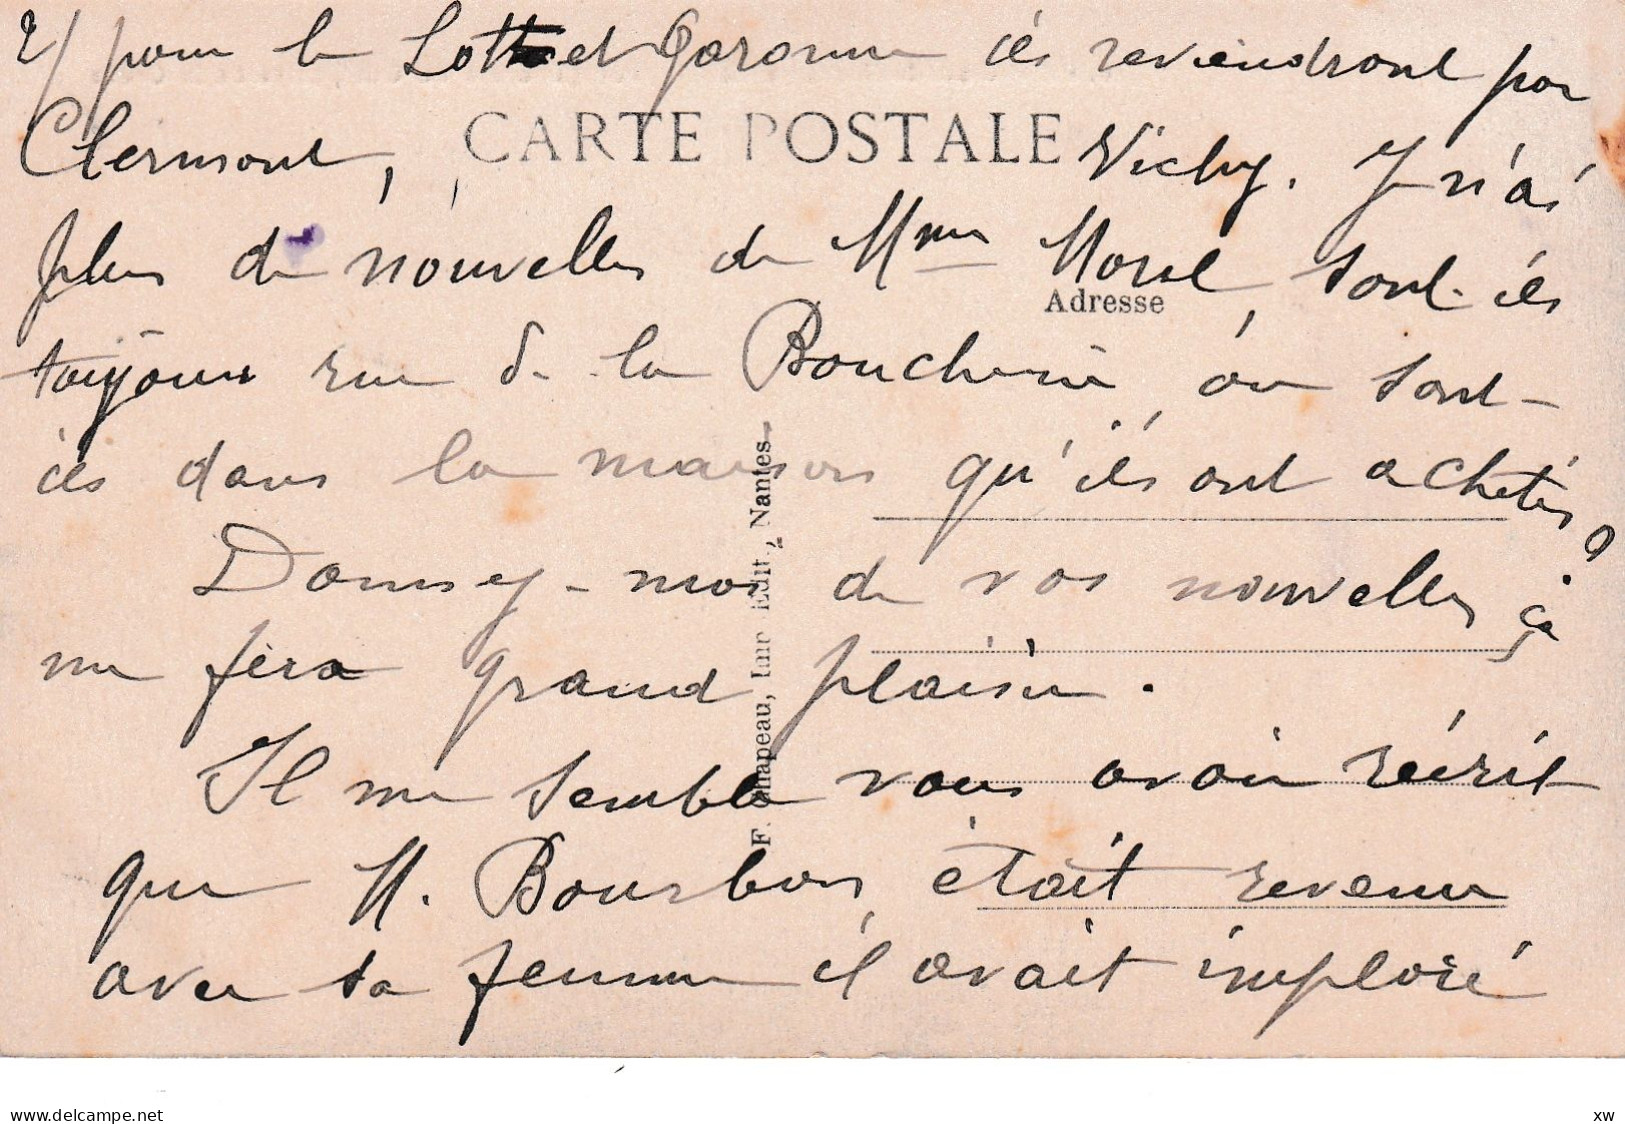 2/ pour le Lot et Garonne ils reviendront par
CARTE POSTALE
Clermont, Vichy. Je n'ai
plus de nouvelles de Mme Morel, sont-ils
Adresse
toujours rue de la Boucherie, ou sont-
ils dans la maison qu'ils ont achetés?
Donnez-moi de vos nouvelles ça
me fera grand plaisir.
Il me semble vous avoir récrit
que M. Bourbon était revenu
avec sa femme il avait imploré
F. Chapeau, Imp. Edit., Nantes
www.delcampe.net
xw